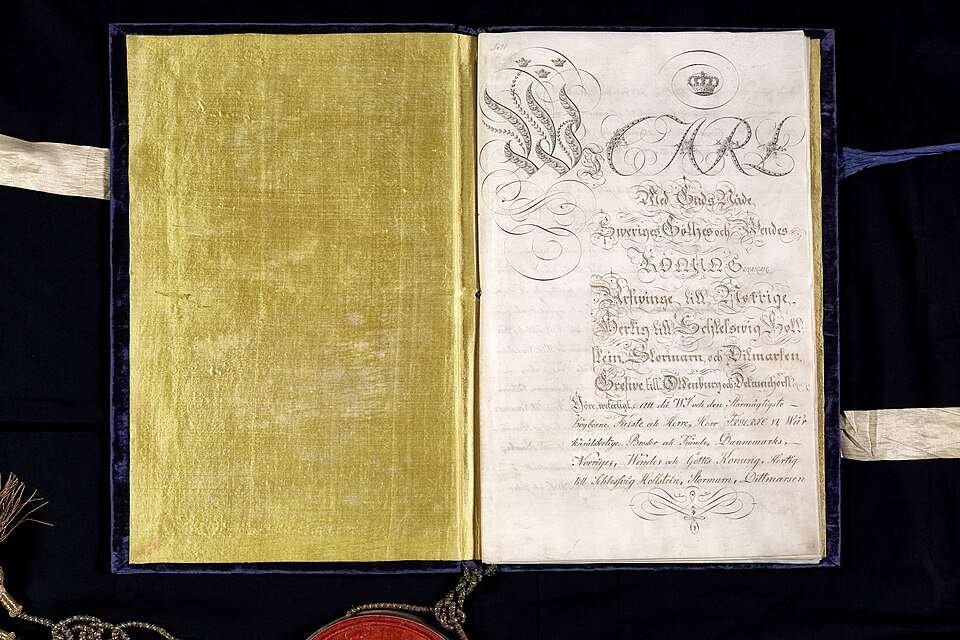 Wi CARL
Med Guds Nåde
Sweriges Göthes och Wendes
KONUNG
Arfwinge till Norrige,
Hertig till Schleswig Holl
stein, Stormarn, och Ditmarsen,
Grefwe till Oldenburg och Delmenhorst
Göre witterligt, att då WI och den Stormägtigste
högborne, Furste och Herre, Herr FREDERIC VI, Wår
käraälskelige Broder och Frände, Dannemarks,
Norriges, Wendes och Göttes Konung, Hertig
till Schleswig Hollstein, Stormarn, Dittmarsen